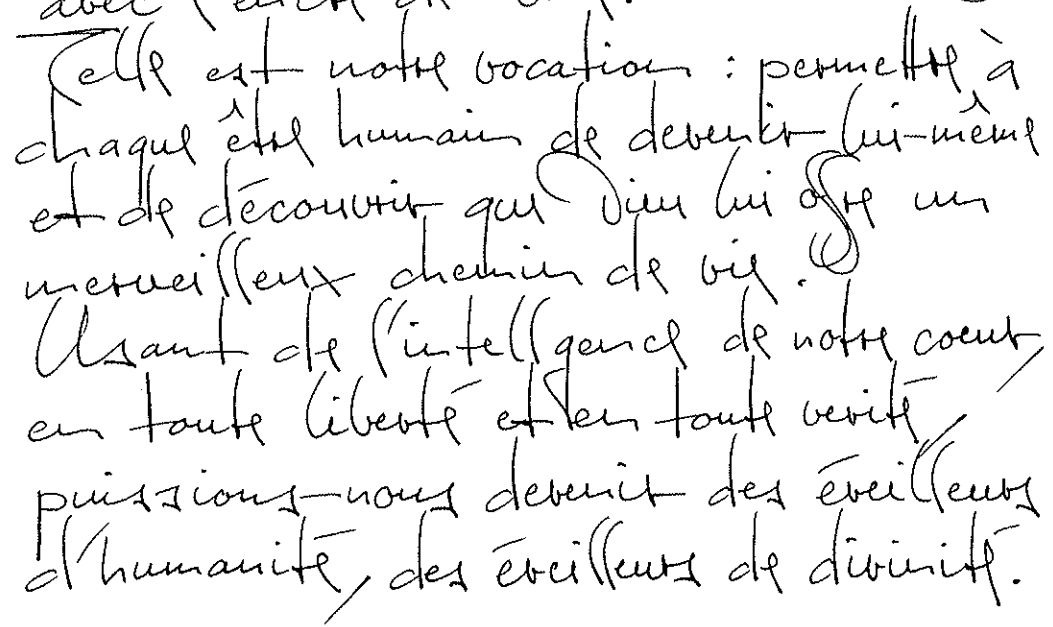 avec l'encre de
Telle est notre vocation : permettre à
chaque être humain de devenir lui-même
et de découvrir que Dieu lui offre un
merveilleux chemin de vie.
Usant de l'intelligence de notre coeur,
en toute liberté et en toute vérité,
puissions-nous devenir des éveilleurs
d'humanité, des éveilleurs de divinité.